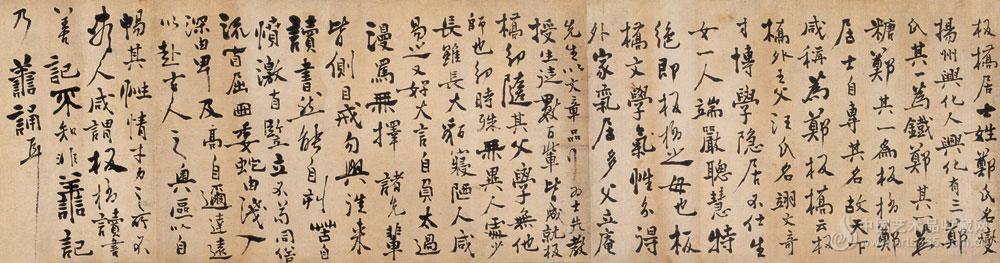 板橋居士姓鄭氏名燮
揚州興化人興化有三鄭
氏其一為鐵鄭其一為
糖鄭其一為板橋鄭
居士自喜其名故天下
咸稱為鄭板橋云板
橋外王父汪氏名翊文奇
才博學隱居不仕生
女一人端嚴聰慧特
絕即板橋之母也板
橋文學氣性分得
外家氣居多父立庵
先生以文章品行為士先教
授生徒數百輩皆成就板
橋幼隨其父學無他
師也幼時殊無異人處少
長雖長大貌寢陋人咸
易之又好大言自負太過
漫罵無擇諸先輩
皆側目戒勿與往來
讀書然能自刻苦自
憤激自豎立不苟同俗
深自屈曲委蛇由淺入
深由卑及高自邇達遠
以赴古人之奧區以自
暢其性情才力之所不
盡人咸謂板橋讀書
善記不知非善記
乃善誦耳